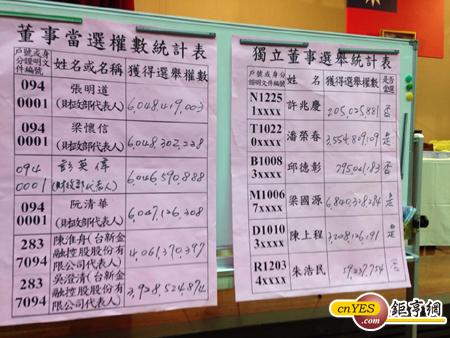 董事當選權數統計表
戶號或身分證明文件編號
姓名或名稱
獲得選舉權數
094
0001
張明道
(財政部代表人)
6,048,419,003
094
0001
梁懷信
(財政部代表人)
6,048,302,228
094
0001
彭英偉
(財政部代表人)
6,046,590,888
094
0001
阮清華
(財政部代表人)
6,047,126,308
283
7094
陳淮舟(台新金
融控股股份有
限公司代表人)
4,061,370,397
283
7094
吳澄清(台新金
融控股股份有
限公司代表人)
3,928,524,874
獨立董事選舉統計表
戶號或身分證明文件編號
姓名
獲得選舉權數
是否當選
N1225
1xxxx
許兆慶
205,025,881
否
T1022
0xxxx
潘榮春
3,554,809,109
是
B1008
3xxxx
邱德彰
795,041,183
否
M1006
7xxxx
梁國源
6,840,328,284
是
D1010
3xxxx
陳上程
3,208,126,191
是
R1203
4xxxx
朱浩民
59,237,754
否
cnYES
.com
鉅亨網